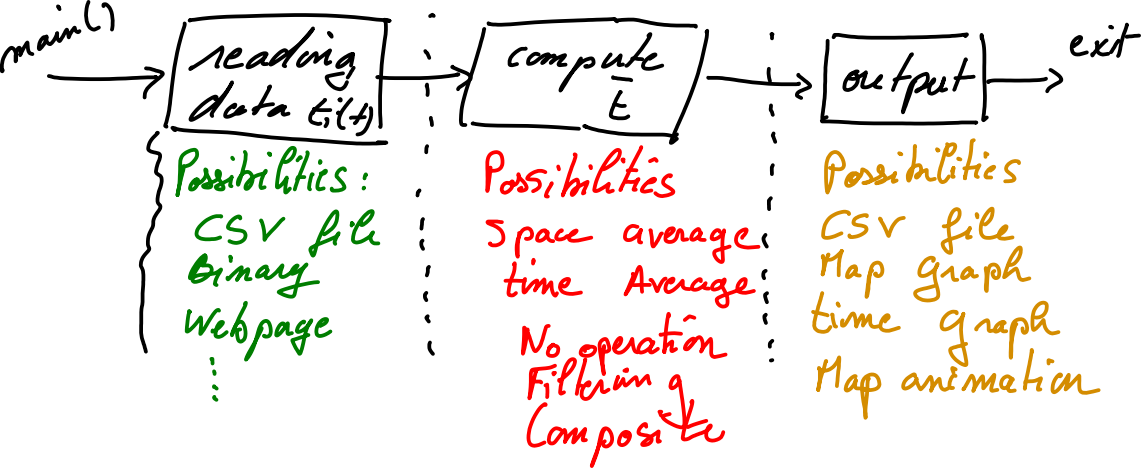 main()
reading
data ti(t)
compute
t̅
output
exit
Possibilities :
CSV file
Binary
Webpage
Possibilities
Space average
time Average
No operation
Filtering
Composite
Possibilities
CSV file
Map Graph
time Graph
Map animation